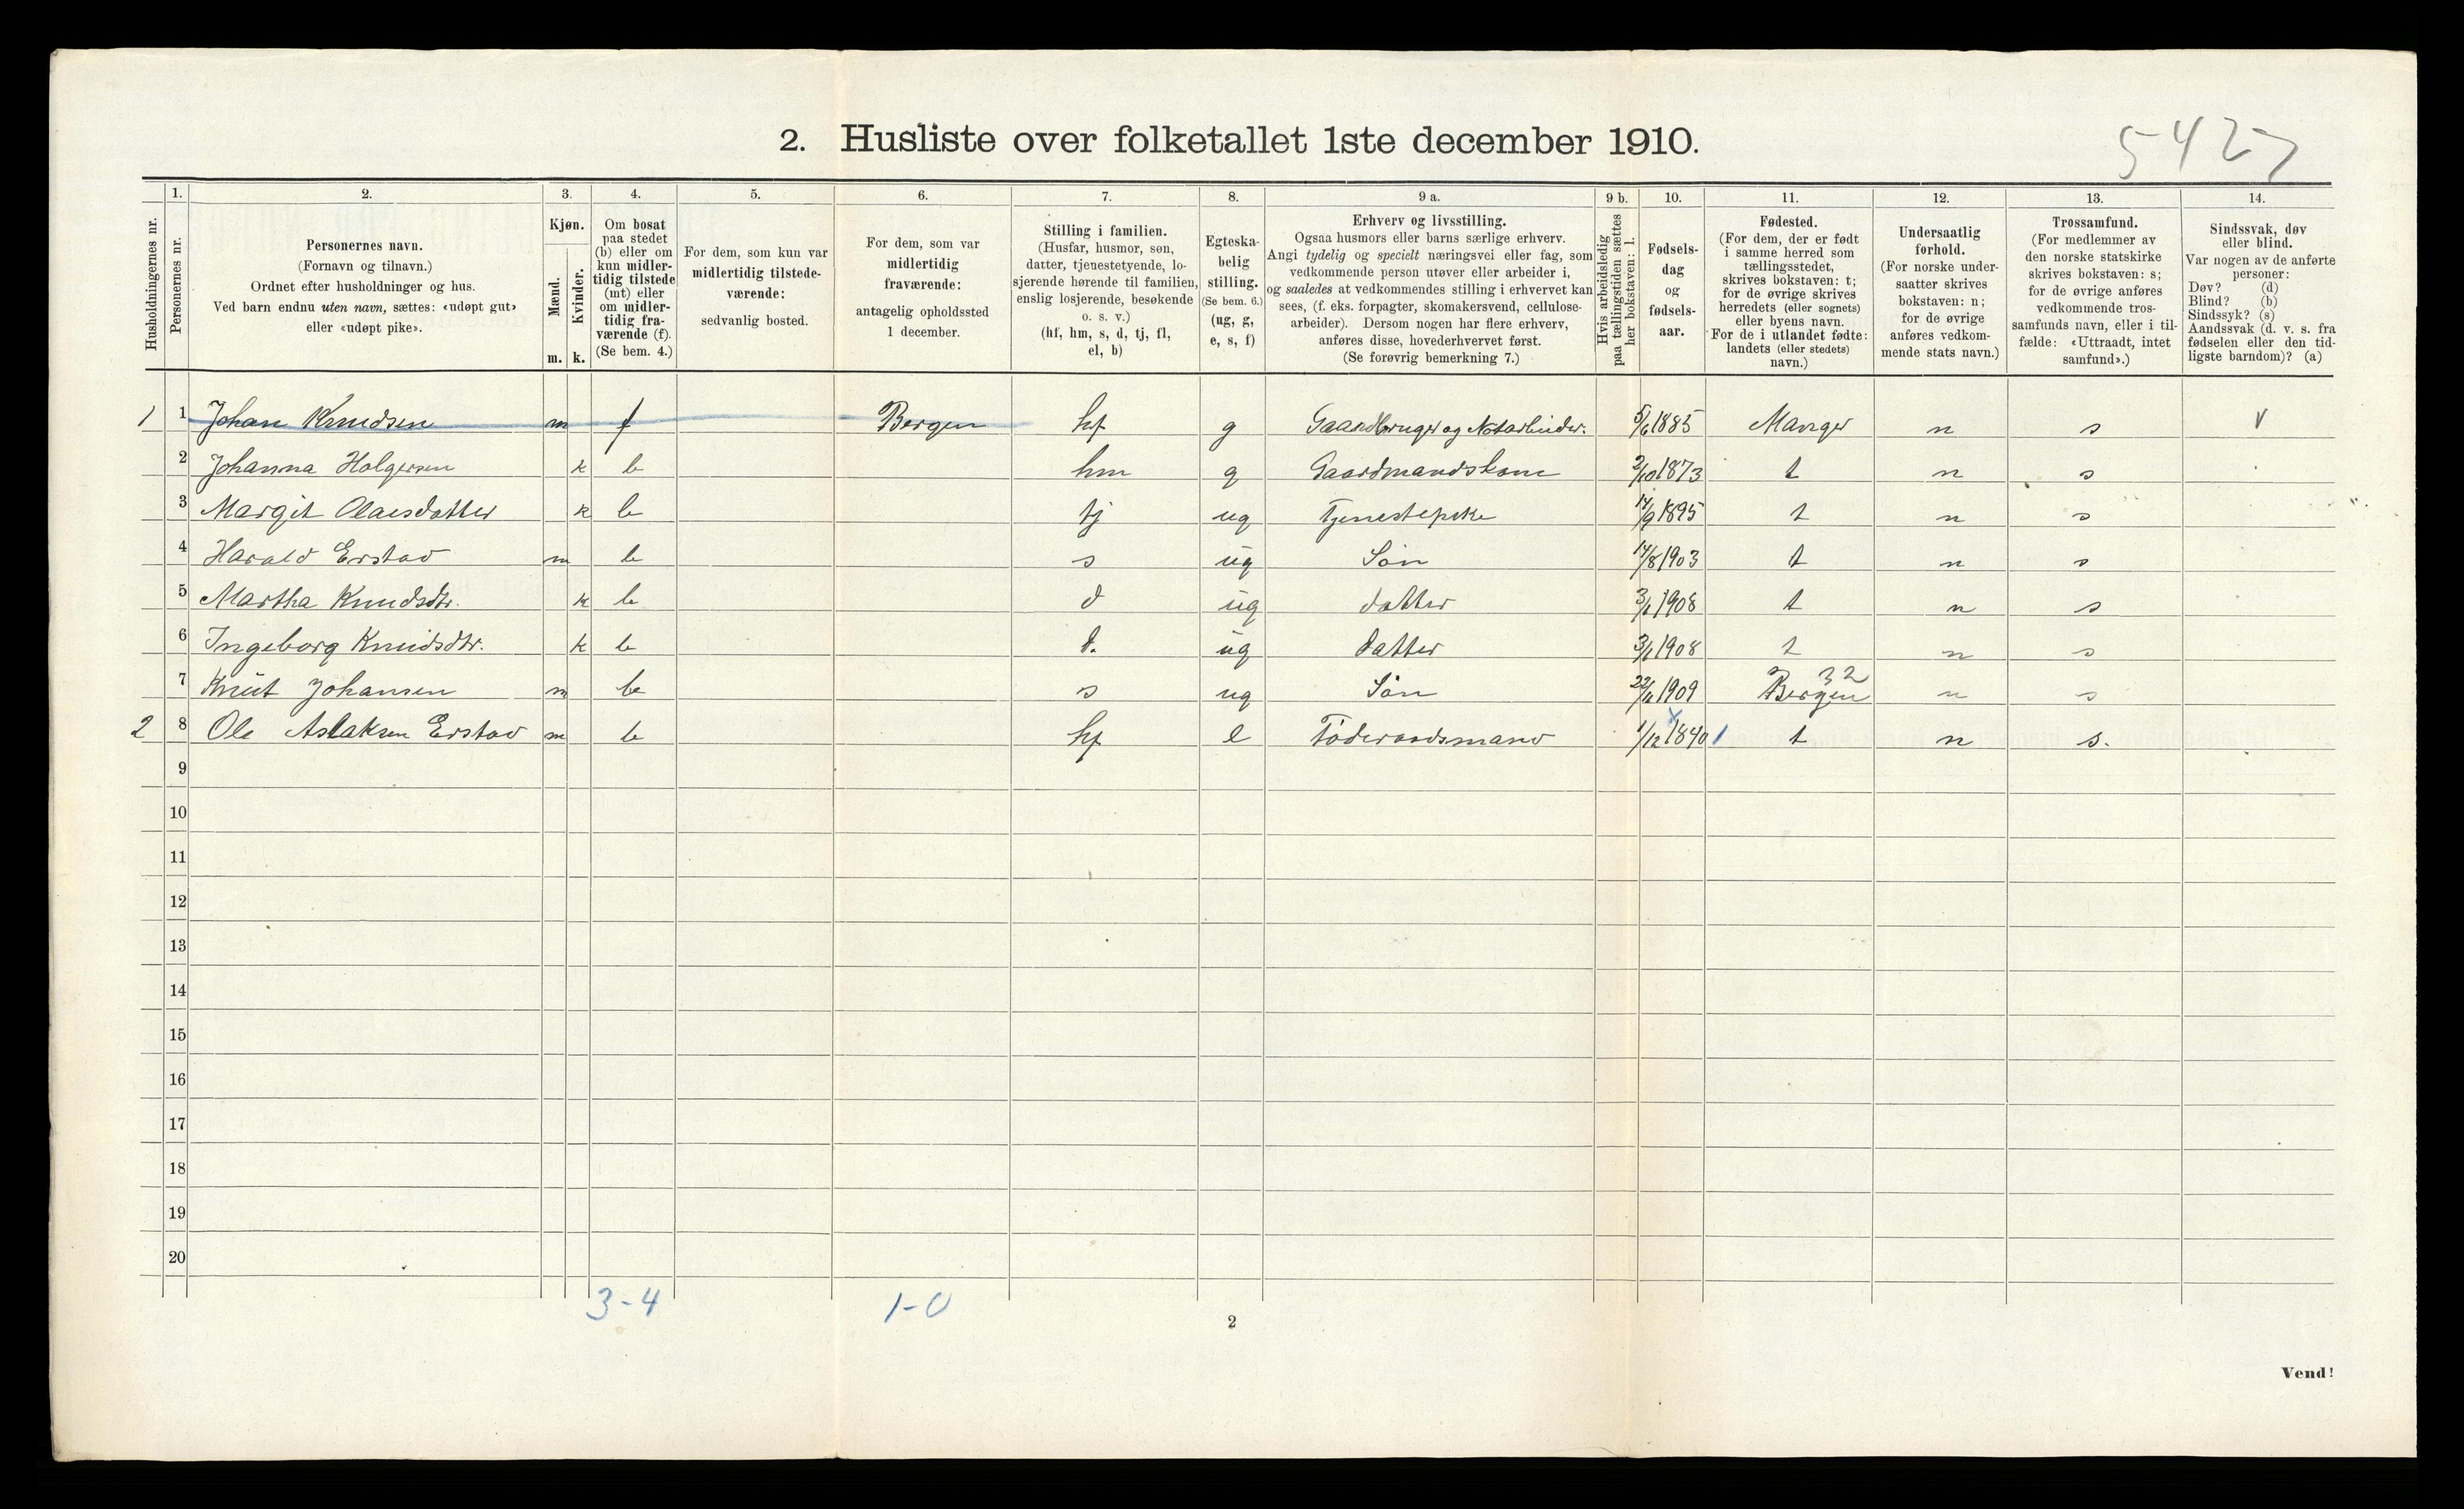 2. Husliste over folketallet 1ste december 1910.
5427
Husholdningernes nr.
1.
Personernes nr.
2.
Personernes navn.
(Fornavn og tilnavn.)
Ordnet efter husholdninger og hus.
Ved barn endnu uten navn, sættes: «udøpt gut»
eller «udøpt pike».
3.
Kjøn.
Mænd.
Kvinder.
m. k.
4.
Om bosat
paa stedet
(b) eller om
kun midler-
tidig tilstede
(mt) eller
om midler-
tidig fra-
værende (f).
(Se bem. 4.)
5.
For dem, som kun var
midlertidig tilstede-
værende:
sedvanlig bosted.
6.
For dem, som var
midlertidig
fraværende:
antagelig opholdssted
1 december.
7.
Stilling i familien.
(Husfar, husmor, søn,
datter, tjenestetyende, lo-
sjerende hørende til familien,
enslig losjerende, besøkende
o. s. v.)
(hf, hm, s, d, tj, fl,
el, b)
8.
Egteska-
belig
stilling.
(Se bem. 6.)
(ug, g,
e, s, f)
9 a.
Erhverv og livsstilling.
Ogsaa husmors eller barns særlige erhverv.
Angi tydelig og specielt næringsvei eller fag, som
vedkommende person utøver eller arbeider i,
og saaledes at vedkommendes stilling i erhvervet kan
sees, (f. eks. forpagter, skomakersvend, cellulose-
arbeider). Dersom nogen har flere erhverv,
anføres disse, hovederhvervet først.
(Se forøvrig bemerkning 7.)
9 b.
Hvis arbeidsledig
paa tællingstiden sættes
her bokstaven: l.
10.
Fødsels-
dag
og
fødsels-
aar.
11.
Fødested.
(For dem, der er født
i samme herred som
tællingsstedet,
skrives bokstaven: t;
for de øvrige skrives
herredets (eller sognets)
eller byens navn.
For de i utlandet fødte:
landets (eller stedets)
navn.)
12.
Undersaatlig
forhold.
(For norske under-
saatter skrives
bokstaven: n;
for de øvrige
anføres vedkom-
mende stats navn.)
13.
Trossamfund.
(For medlemmer av
den norske statskirke
skrives bokstaven: s;
for de øvrige anføres
vedkommende tros-
samfunds navn, eller i til-
fælde: «Uttraadt, intet
samfund».)
14.
Sindssvak, døv
eller blind.
Var nogen av de anførte
personer:
Døv? (d)
Blind? (b)
Sindssyk? (s)
Aandssvak (d. v. s. fra
fødselen eller den tid-
ligste barndom)? (a)
1 1 Johan Knudsen m f Bergen hf g Gaardbruger og Notarbeider. 5/6 1885 Manger n s v
2 Johanna Holgersen k b hm g Gaardmandskone 2/10 1873 t n s
3 Margit Olaisdatter k b tj ug Tjenestepike 14/9 1895 t n s
4 Harald Erstad m b s ug Søn 14/8 1903 t n s
5 Martha Knudsdtr. k b d ug datter 3/1 1908 t n s
6 Ingeborg Knudsdtr. k b d. ug datter 3/1 1908 t n s
32
7 Knut Johansen m b s ug Søn 22/11 1909 Bergen n s
2 8 Ole Aslaksen Erstad m b hf e Føderaadsmand 1/12 1840 1 t n s.
9
10
11
12
13
14
15
16
17
18
19
20
3-4 1-0
2
Vend!